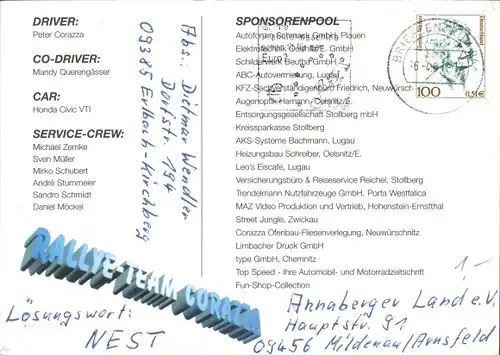 DRIVER:
Peter Corazza
CO-DRIVER:
Mandy Querengässer
CAR:
Honda Civic VTI
SERVICE-CREW:
Michael Zemke
Sven Müller
Mirko Schubert
André Stummeier
Sandro Schmidt
Daniel Möckel
Abs.: Dietmar Wendler
Dorfstr. 194
09385 Erlbach-Kirchberg
RALLYE-TEAM CORAZZA
Lösungswort:
NEST
SPONSORENPOOL
Autoforum Schmack GmbH Plauen
Elektrotechnik Oelsnitz/E. GmbH
Schilderwerk Beutha GmbH
ABC-Autovermietung, Lugau
KFZ-Sachverständigenbüro Friedrich, Neuwürschnitz
Augenoptik Hamann/Oelsnitz/E.
Entsorgungsgesellschaft Stollberg mbH
Kreissparkasse Stollberg
AKS-Systeme Bachmann, Lugau
Heizungsbau Schreiber, Oelsnitz/E.
Leo's Eiscafe, Lugau
Versicherungsbüro & Reiseservice Reichel, Stollberg
Trendelmann Nutzfahrzeuge GmbH, Porta Westfalica
MAZ Video Produktion und Vertrieb, Hohenstein-Ernstthal
Street Jungle, Zwickau
Corazza Ofenbau-Fliesenverlegung, Neuwürschnitz
Limbacher Druck GmbH
type GmbH, Chemnitz
Top Speed - Ihre Automobil- und Motorradzeitschrift
Fun-Shop-Collection
Deutschland
100
0,51€
1.-
Annaberger Land e.V.
Hauptstr. 91
09456 Mildenau/Arnsfeld